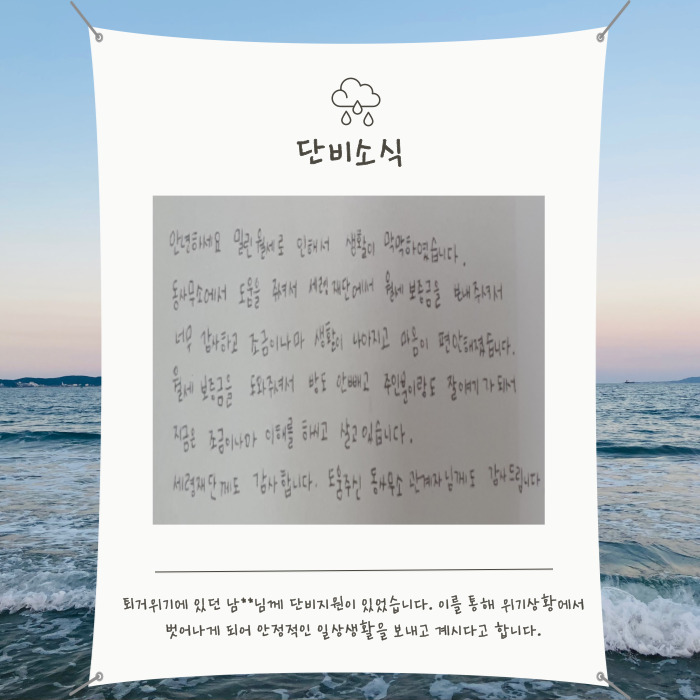 단비소식
안녕하세요 밀린 월세로 인해서 생활이 막막하였습니다.
동사무소에서 도움을 주셔서 세령재단에서 월세 보증금을 보내주셔서
너무 감사하고 조금이나마 생활이 나아지고 마음이 편안해졌습니다.
월세 보증금을 도와주셔서 방도 안빼고 주인분이랑도 잘이야기가되서
지금은 조금이나마 이해를 하시고 살고있습니다.
세령재단께도 감사합니다. 도움주신 동사무소 관계자님께도 감사드립니다
퇴거위기에 있던 남**님께 단비지원이 있었습니다. 이를 통해 위기상황에서
벗어나게 되어 안정적인 일상생활을 보내고 계시다고 합니다.